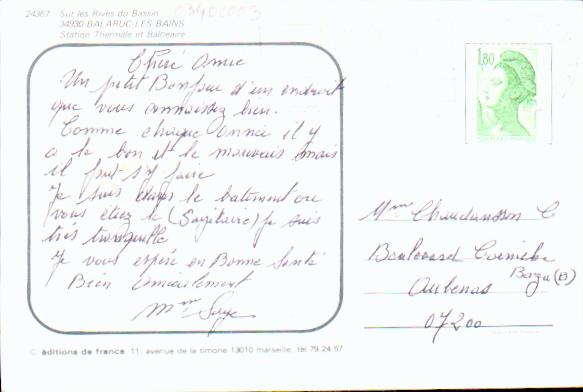 24367 Sur les Rives du Bassin
34930 BALARUC-LES-BAINS
Station Thermale et Balnéaire
03400003
1,80
Chére Amie
Un petit Bonjour d'un endroit
que vous connaissez bien.
Comme chaque année il y
a le bon et le mauvais mais
il faut s'y faire
Je suis dans le batiment ou
vous étiez le (Sagitaire) Je suis
très tranquille
Je vous espére en Bonne Santé
Bien Amicalement
Mme
Mme Chaudanson C
Boulevard Corniche
Baza (B)
Aubenas
07200
© éditions de france 11, avenue de la timone 13010 marseille, tél 79 24 57